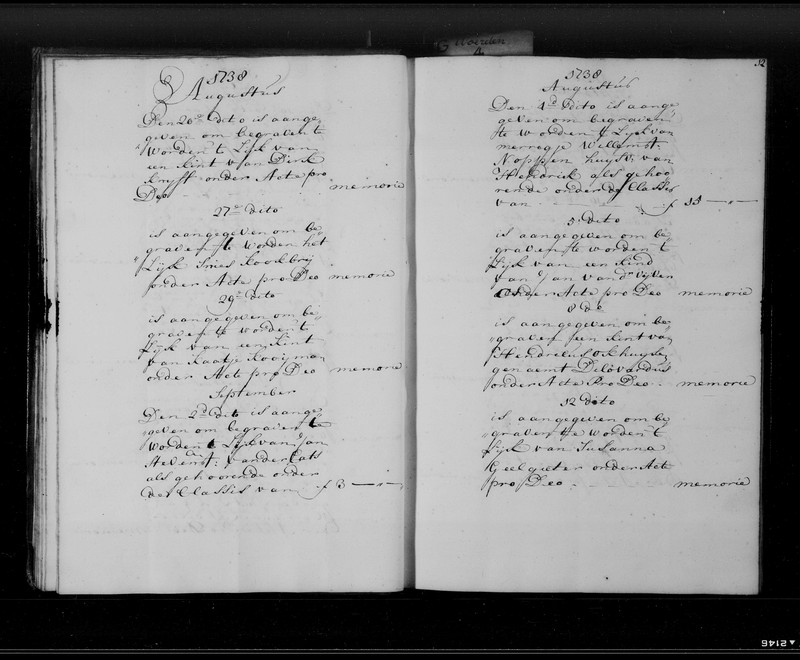 1738
Augustus
Den 20e dito is aange
geven om begraven t
worden t Lijk van
een kint van Dirk
onder Acte pro
Deo memorie
27e dito
is aangegeven om be
graven te worden het
Lijk
onder Acte pro Deo memorie
29e dito
is aangegeven om be
graven te worden t
Lijk van een kint
van Kaatje Kooijman
onder Acte pro Deo memorie
September
Den 2d dito is aange
geven om begraven te
worden t Lijk van Jan
van der
als gehoorende onder
de Classis van f 3 —
52
1738
Augustus
Den 4d dito is aange
geven om begraven
te worden t Lijk van
merregje Willemse
Noppen huysv. van
Hendrick als gehoo
rende onder de Classis
van f 15 —
5 dito
is aangegeven om be
graven te worden t
Lijk van een kind
van Jan van
onder Acte pro Deo memorie
8 do
is aangegeven om be
graven een kint van
gen aemt
onder Acte Pro Deo memorie
12 dito
is aangegeven om be
graven te worden t
Lijk van Susanna
Geelgieter onder Act
pro Deo memorie
2146